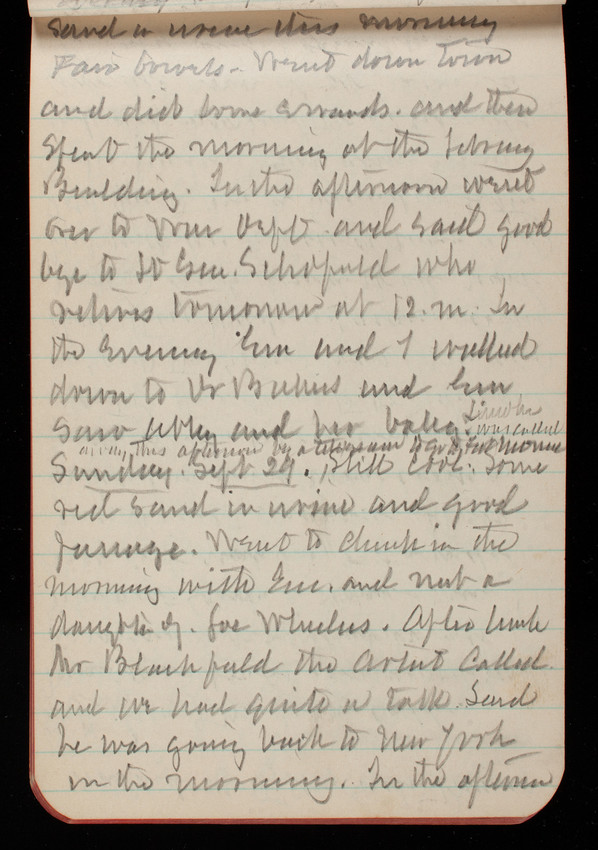 sand in urine this morning
Fair bowels. Went down town
and did some errands. and then
Spent the morning at the Library
Building. In the afternoon went
over to War Dept and said good
bye to Lt Gen. Schofield who
retires tomorrow at 12. m. In
the evening Em and I walked
down to Dr and Em
Saw Abby and her baby. Lincoln
was called
away this afternoon by a telegram to go to Fort Monroe
Sunday. Sept 29. Still Cool. Some
red sand in urine and good
passage. Went to church in the
morning with Em. and met a
daughter of. Joe Wheeler. After lunch
Mr Blashfield the Artist Called.
and we had quite a talk. Said
he was going back to New York
in the morning. In the afternoon